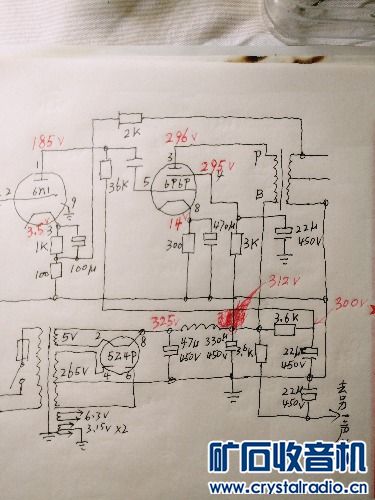 2K
185V
296V
295V
1
3
P
36K
2
6N1
5
6P6P
8
9
B
3.5V
3
14V
470μ
1K
300
3K
22μ
450V
100
100μ
312V
300V
325V
3.6K
5V
2
8
5Z4P
47μ
450V
330μ
450V
3.6K
22μ
450V
265V
4
6
22μ
450V
6.3V
3.15V×2
去另一声
矿石收音机
www.crystalradio.cn